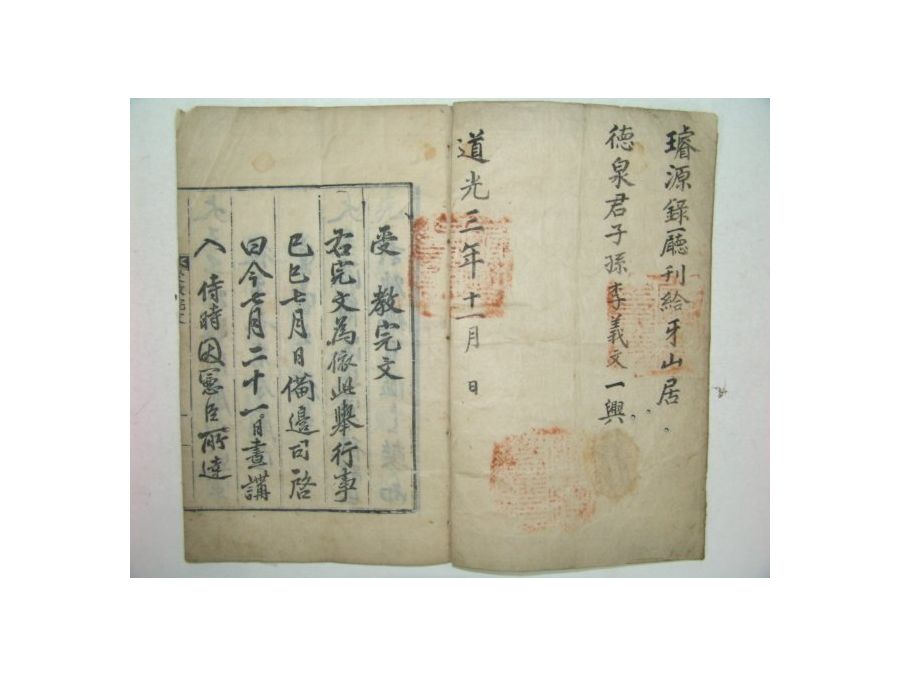 璿源錄廳刊給牙山居
德泉君子孫李義文一興
道光三年十一月 日
受 教完文
右完文為依此擧行事
己巳七月日備邊司啓
曰今七月二十一日晝講
入 侍時因憲臣所達